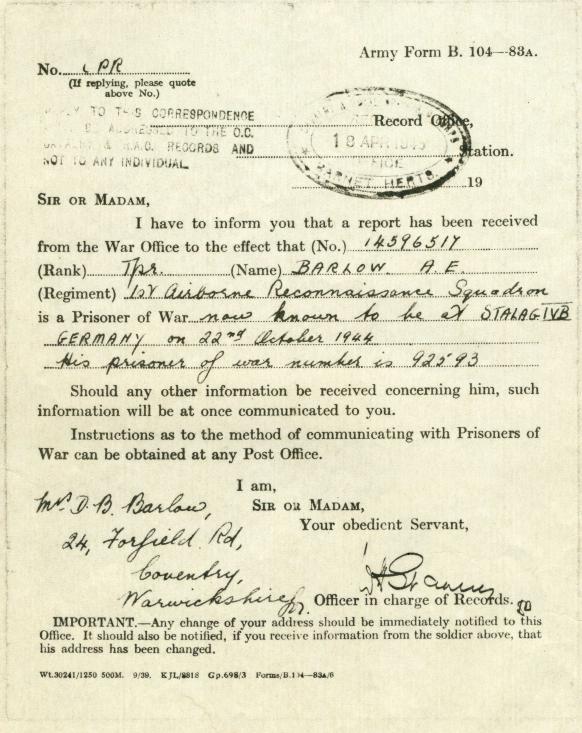 Army Form B. 104—83A.
No. PR
(If replying, please quote
above No.)
TO THIS CORRESPONDENCE
ADDRESSED TO THE O.C.
R.A.C. RECORDS AND
NOT TO ANY INDIVIDUAL
Record Office,
18 APR 1945
OFFICE
Station.
BARNET, HERTS.
19
SIR OR MADAM,
I have to inform you that a report has been received
from the War Office to the effect that (No.) 14596517
(Rank) Tpr. (Name) BARLOW. A.E.
(Regiment) 1st Airborne Reconnaissance Squadron
is a Prisoner of War now known to be at STALAG IVB
GERMANY on 22nd October 1944
His prisoner of war number is 92593
Should any other information be received concerning him, such
information will be at once communicated to you.
Instructions as to the method of communicating with Prisoners of
War can be obtained at any Post Office.
I am,
SIR OR MADAM,
Your obedient Servant,
Mrs D. B. Barlow,
24, Forfield Rd,
Coventry,
Warwickshire
for Officer in charge of Records.
IMPORTANT.—Any change of your address should be immediately notified to this
Office. It should also be notified, if you receive information from the soldier above, that
his address has been changed.
Wt.30241/1250 500M. 9/39. KJL/8818 Gp.698/3 Forms/B.104—83A/6